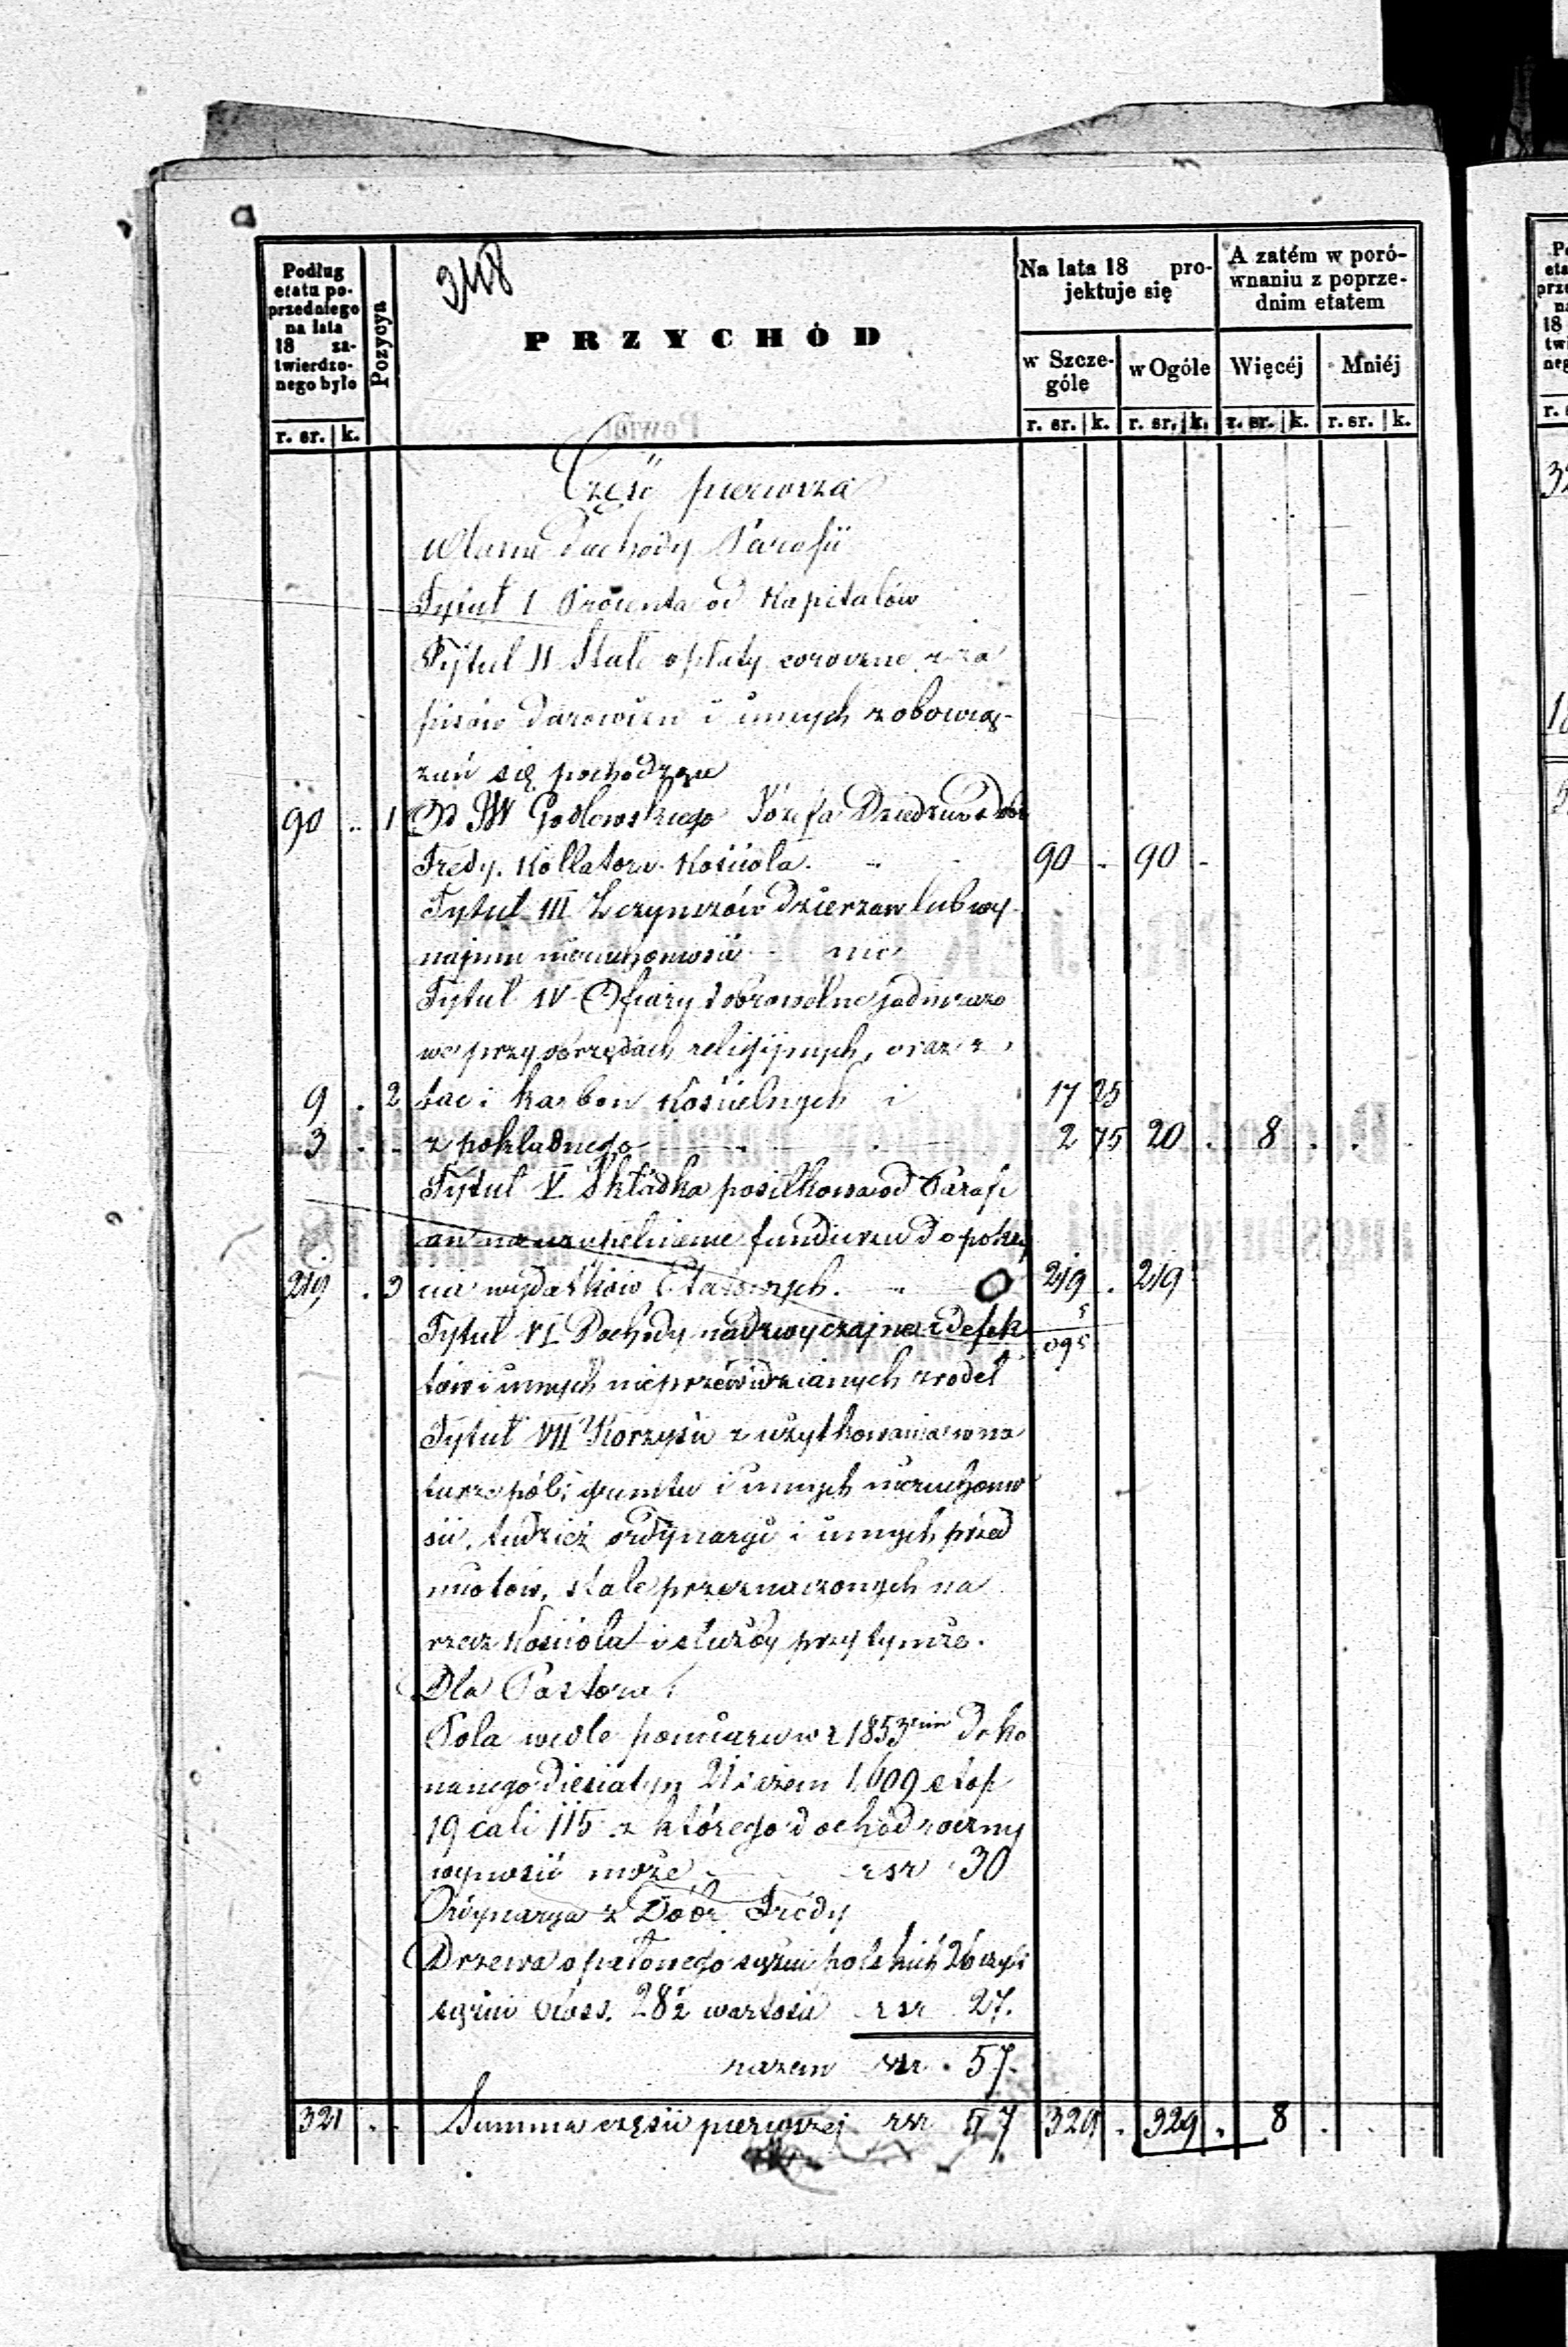 348
Podług etatu poprzedniego na lata 18 zatwierdzonego było
Pozycya
PRZYCHÓD
Na lata 18 projektuje się
A zatém w porównaniu z poprzednim etatem
w Szczególe
w Ogóle
Więcéj
Mniéj
r. sr. k.
r. sr. k. r. sr. k. r. sr. k. r. sr. k.
Część pierwsza
Własne Dochody Parafii
Tytuł I Procenta od Kapitałów
Tytuł II Stałe opłaty coroczne z za
pisów darowizn i innych zobowią-
zań się pochodzące
90 .. 1 Od JW Godlewskiego Józefa Dziedzica dóbr
Fredy. Kollatora Kościoła. 90 - 90 -
Tytuł III Z czynszów dzierzaw lub wy-
najmu nieruchomości nic
Tytuł IV Ofiary dobrowolne jednorazo
we przy obrzędach religijnych, oraz z
9 . 2 tac i karbon Kościelnych i 17 25
3 . . z pokładnego 2 75 20 . 8 . . .
Tytuł V Składka posiłkowa od Parafi
an na uzupełnienie funduszu do pokry
219 . 3 cia wydatków Etatowych. 219 . 219
Tytuł VI Dochody nadzwyczajne z defek
tów i innych nieprzewidzianych zrodeł
Tytuł VII Korzyści z użytkowania w na
turze pól i gruntu i innych nieruchomo
ści, tudzież ordynaryi i innych przed
miotów, stale przeznaczonych na
rzecz Kościoła i służby przy tymże.
Dla Pastora
Pola wedle pomiaru w r 1853 doko
nanego Diesiatyn 21 sążem 1,609 stop
19 cali 115 z którego dochód roczny
wynosić może rsr 30
Ordynarya z Dóbr Fredy
Drzewa opałowego sążni polskich 26 czyli
sążni Ross. 28½ wartości rsr 27.
razem rsr. 57.
321 . . Summa części pierwszej rsr 57 329 . 329 . 8 . . .